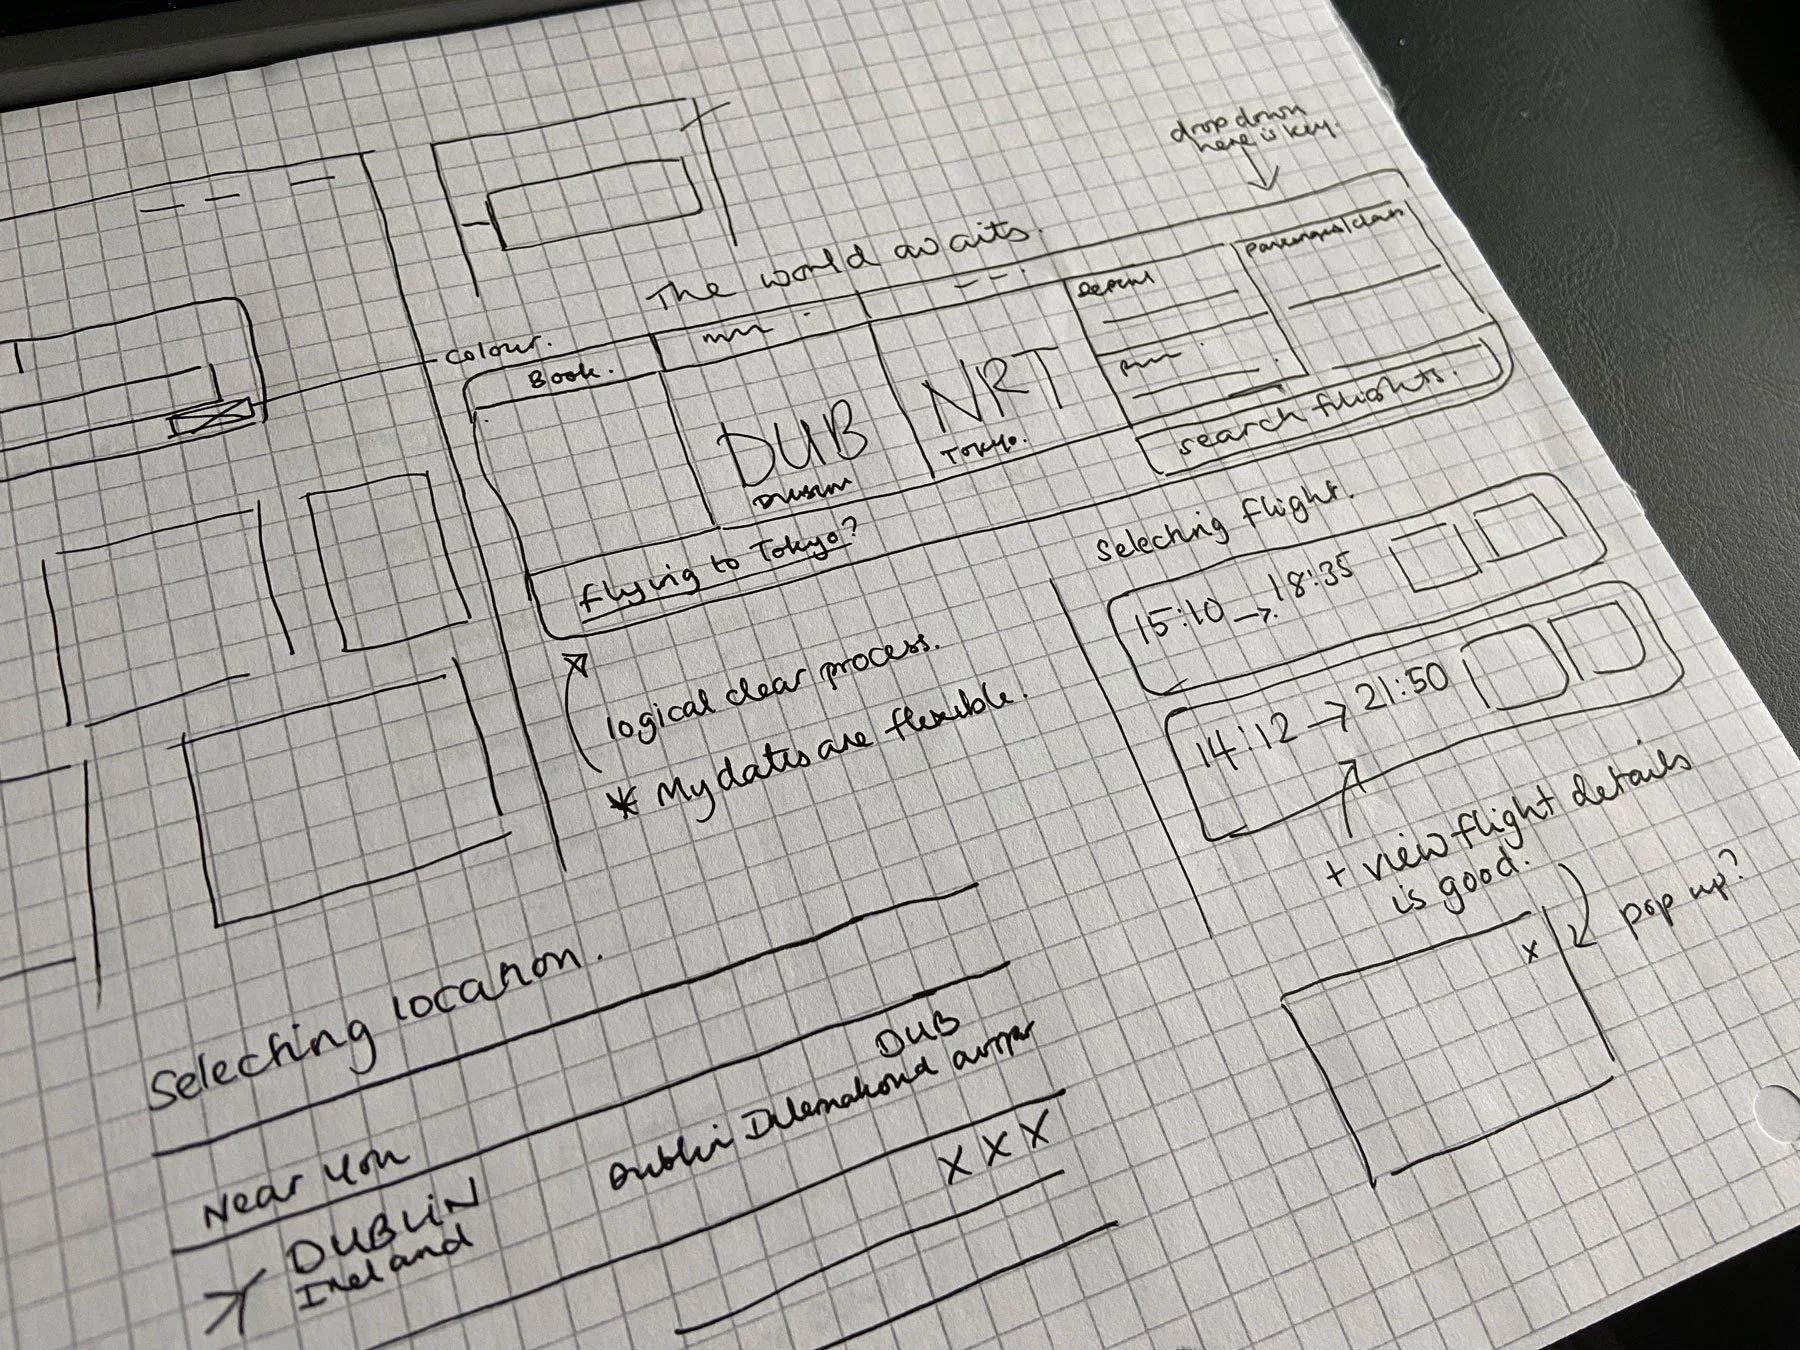 drop down
here is key.
The world awaits.
colour.
Book.
Depart
passengers/class
DUB
Dublin
NRT
Tokyo.
search flights.
flying to Tokyo?
logical clear process.
* My dates are flexible.
Selecting flight.
15:10 → 18:35
14:12 → 21:50
+ view flight details
is good.
pop up?
x
Selecting location.
Near you
DUBLIN
Ireland
DUB
Dublin International
X X X